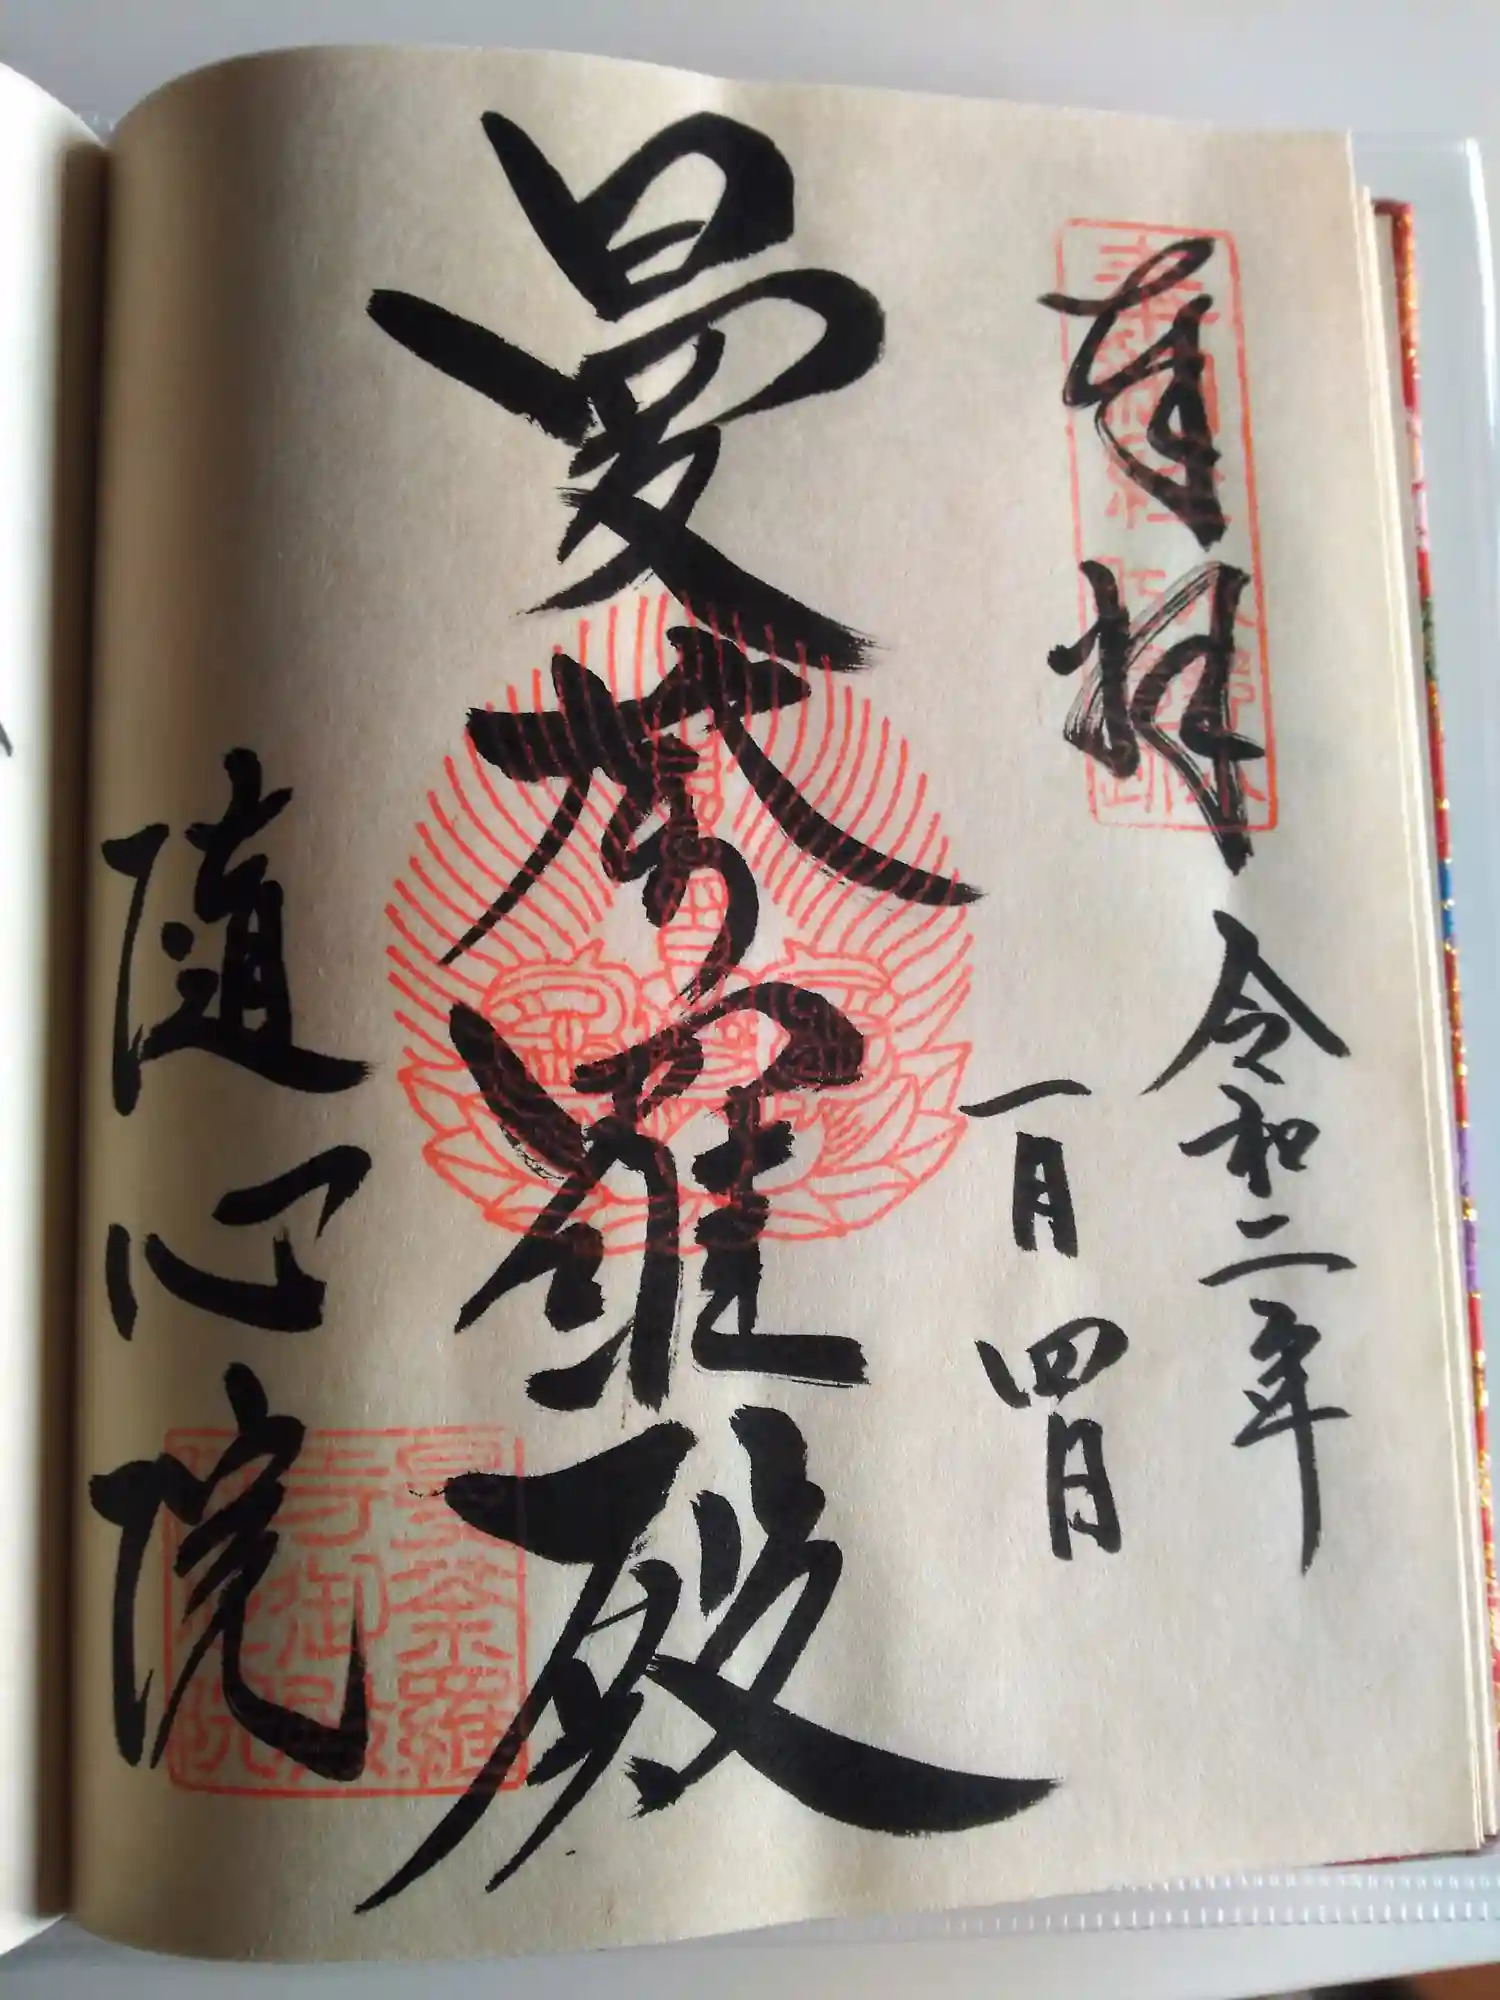 奉拝
令和二年
一月四日
曼荼羅殿
随心院
曼荼羅
寺御殿